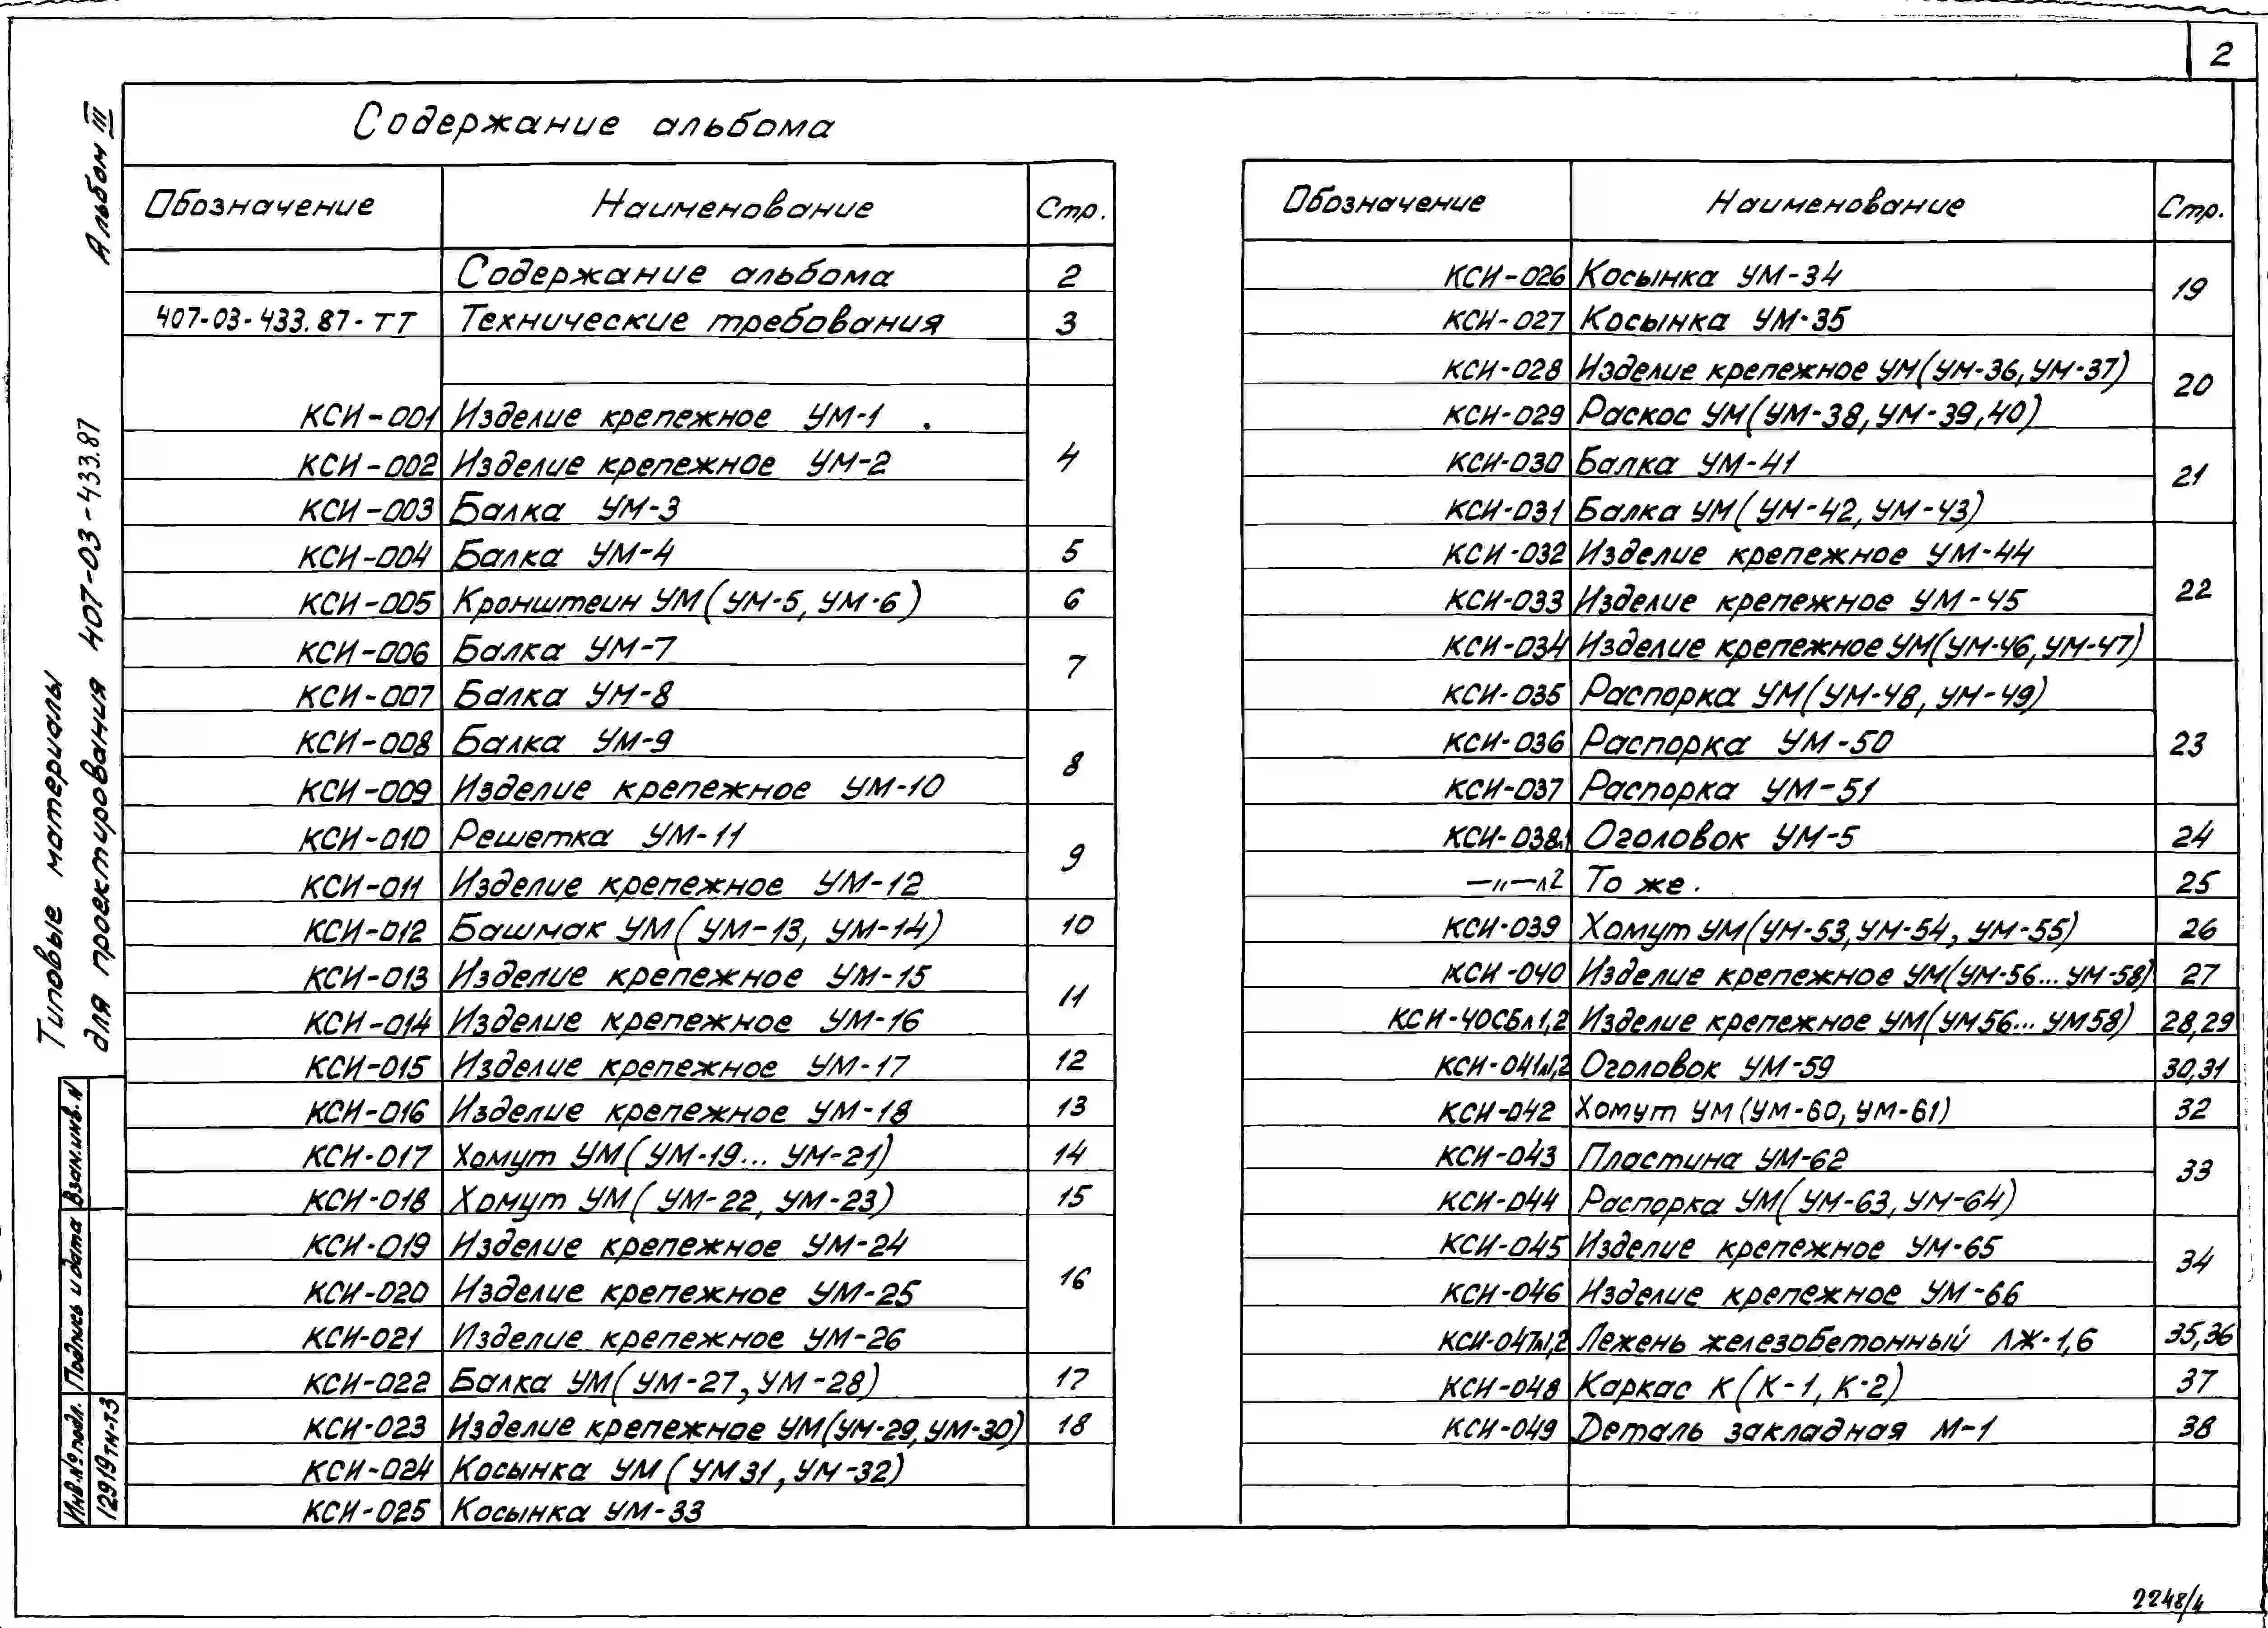 2
Содержание альбома
Обозначение Наименование Стр.
Содержание альбома 2
407-03-433.87-ТТ Технические требования 3
КСИ-001 Изделие крепежное УМ-1
КСИ-002 Изделие крепежное УМ-2 4
КСИ-003 Балка УМ-3
КСИ-004 Балка УМ-4 5
КСИ-005 Кронштеин УМ(УМ-5, УМ-6) 6
КСИ-006 Балка УМ-7 7
КСИ-007 Балка УМ-8
КСИ-008 Балка УМ-9 8
КСИ-009 Изделие крепежное УМ-10
КСИ-010 Решетка УМ-11 9
КСИ-011 Изделие крепежное УМ-12
КСИ-012 Башмак УМ(УМ-13, УМ-14) 10
КСИ-013 Изделие крепежное УМ-15 11
КСИ-014 Изделие крепежное УМ-16
КСИ-015 Изделие крепежное УМ-17 12
КСИ-016 Изделие крепежное УМ-18 13
КСИ-017 Хомут УМ(УМ-19... УМ-21) 14
КСИ-018 Хомут УМ(УМ-22, УМ-23) 15
КСИ-019 Изделие крепежное УМ-24
КСИ-020 Изделие крепежное УМ-25 16
КСИ-021 Изделие крепежное УМ-26
КСИ-022 Балка УМ(УМ-27, УМ-28) 17
КСИ-023 Изделие крепежное УМ(УМ-29, УМ-30) 18
КСИ-024 Косынка УМ(УМ31, УМ-32)
КСИ-025 Косынка УМ-33
Обозначение Наименование Стр.
КСИ-026 Косынка УМ-34 19
КСИ-027 Косынка УМ-35
КСИ-028 Изделие крепежное УМ(УМ-36, УМ-37) 20
КСИ-029 Раскос УМ(УМ-38, УМ-39,40)
КСИ-030 Балка УМ-41 21
КСИ-031 Балка УМ(УМ-42, УМ-43)
КСИ-032 Изделие крепежное УМ-44
КСИ-033 Изделие крепежное УМ-45 22
КСИ-034 Изделие крепежное УМ(УМ-46, УМ-47)
КСИ-035 Распорка УМ(УМ-48, УМ-49)
КСИ-036 Распорка УМ-50 23
КСИ-037 Распорка УМ-51
КСИ-038л1 Оголовок УМ-5 24
—"—л2 То же. 25
КСИ-039 Хомут УМ(УМ-53, УМ-54, УМ-55) 26
КСИ-040 Изделие крепежное УМ(УМ-56... УМ-58) 27
КСИ-40СБл1,2 Изделие крепежное УМ(УМ56... УМ58) 28,29
КСИ-041л1,2 Оголовок УМ-59 30,31
КСИ-042 Хомут УМ(УМ-60, УМ-61) 32
КСИ-043 Пластина УМ-62 33
КСИ-044 Распорка УМ(УМ-63, УМ-64)
КСИ-045 Изделие крепежное УМ-65 34
КСИ-046 Изделие крепежное УМ-66
КСИ-047л1,2 Лежень железобетонный ЛЖ-1,6 35,36
КСИ-048 Каркас К(К-1, К-2) 37
КСИ-049 Деталь закладная М-1 38
Альбом III
Типовые материалы
для проектирования 407-03-433.87
Взам.инв.N
Подпись и дата
Инв.№ подл.
12919тм-т3
2248/4